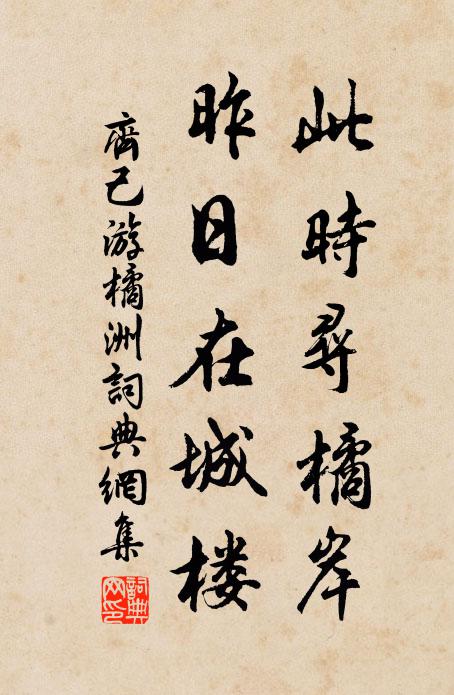 此時尋橘岸
昨日在城楼
齊己游橘洲詞典網集
詞典网印